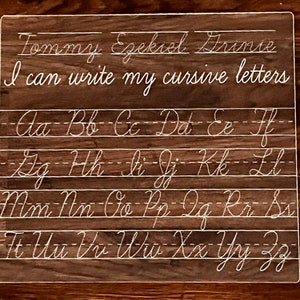 Tommy Ezekiel Grinie
I can write my cursive letters
Aa Bb Cc Dd Ee Ff
Gg Hh Ii Jj Kk Ll
Mm Nn Oo Pp Qq Rr Ss
Tt Uu Vv Ww Xx Yy Zz